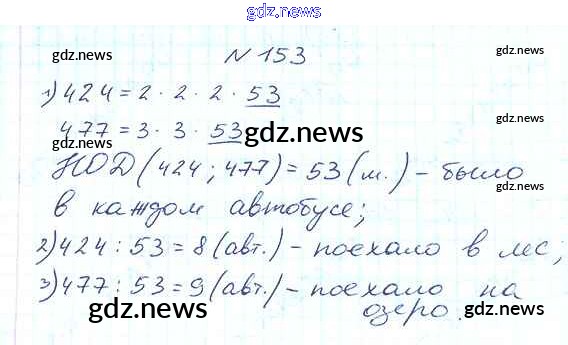 gdz.news
gdz.news
N 153
gdz.news
1) 424 = 2 · 2 · 2 · 53
477 = 3 · 3 · 53
gdz.news
НОД (424; 477) = 53 (м.) - было
gdz.news
в каждом автобусе;
2) 424 : 53 = 8 (авт.) - поехало в лес;
3) 477 : 53 = 9 (авт.) - поехало на
озеро.
gdz.news
gdz.news